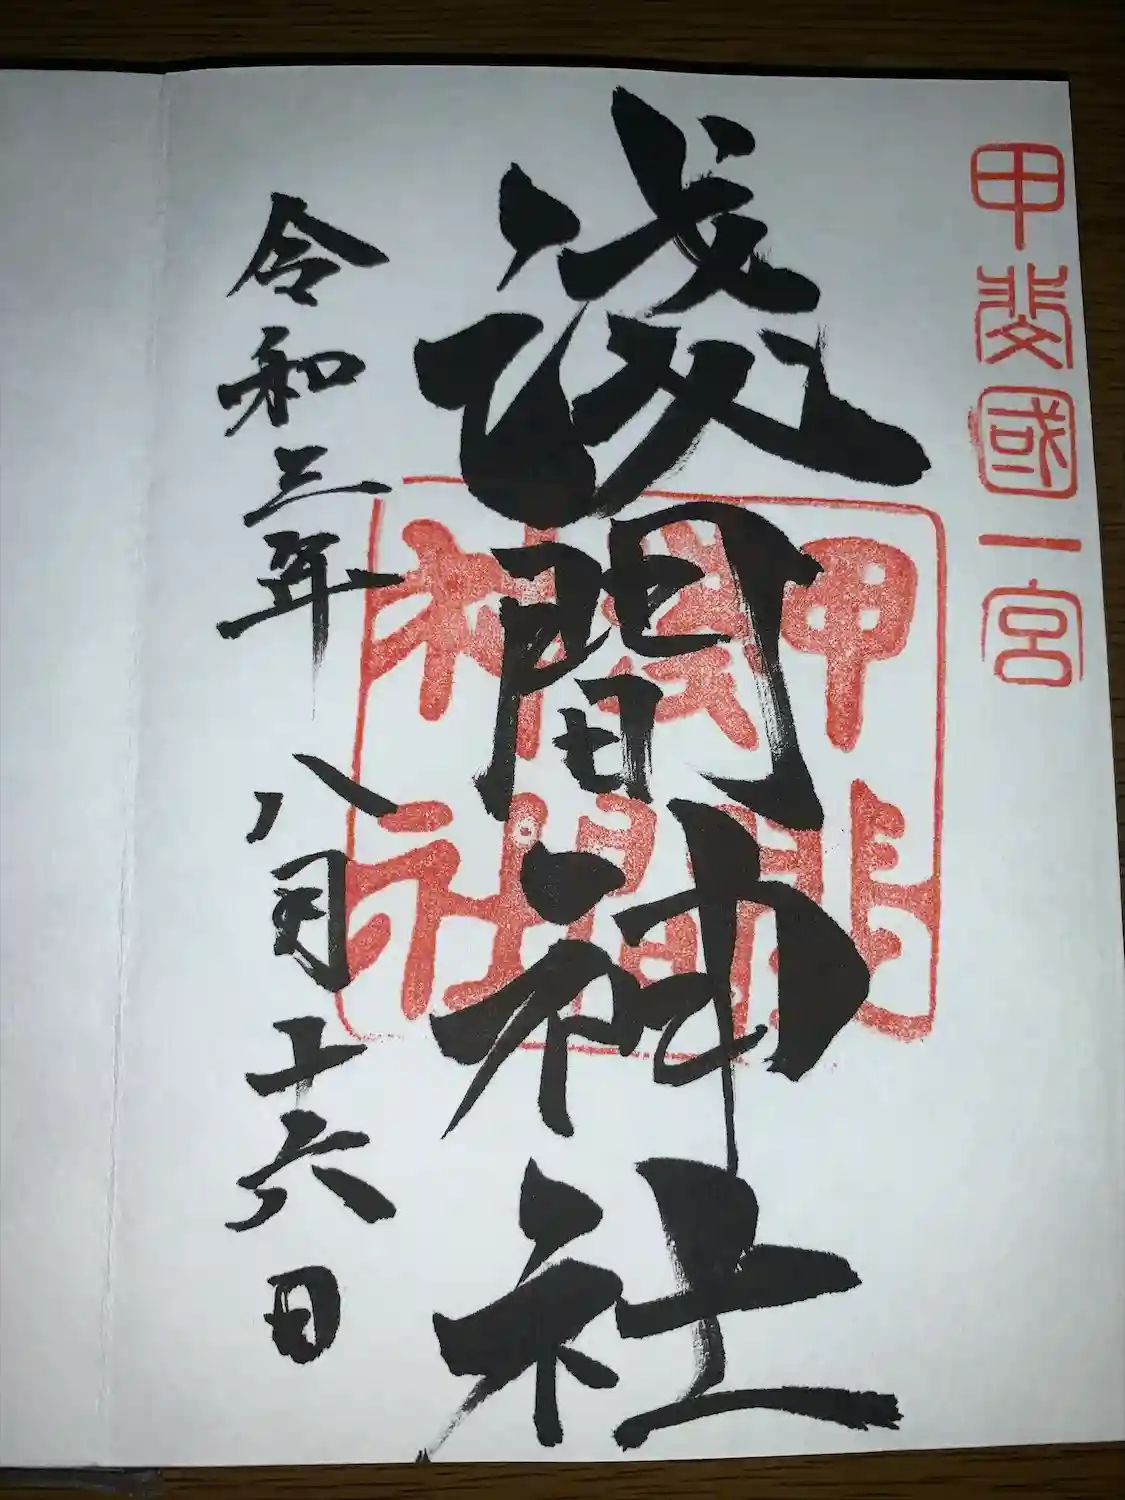 甲斐國一宮
淺間神社
甲斐
淺間
神社
令和三年八月十六日